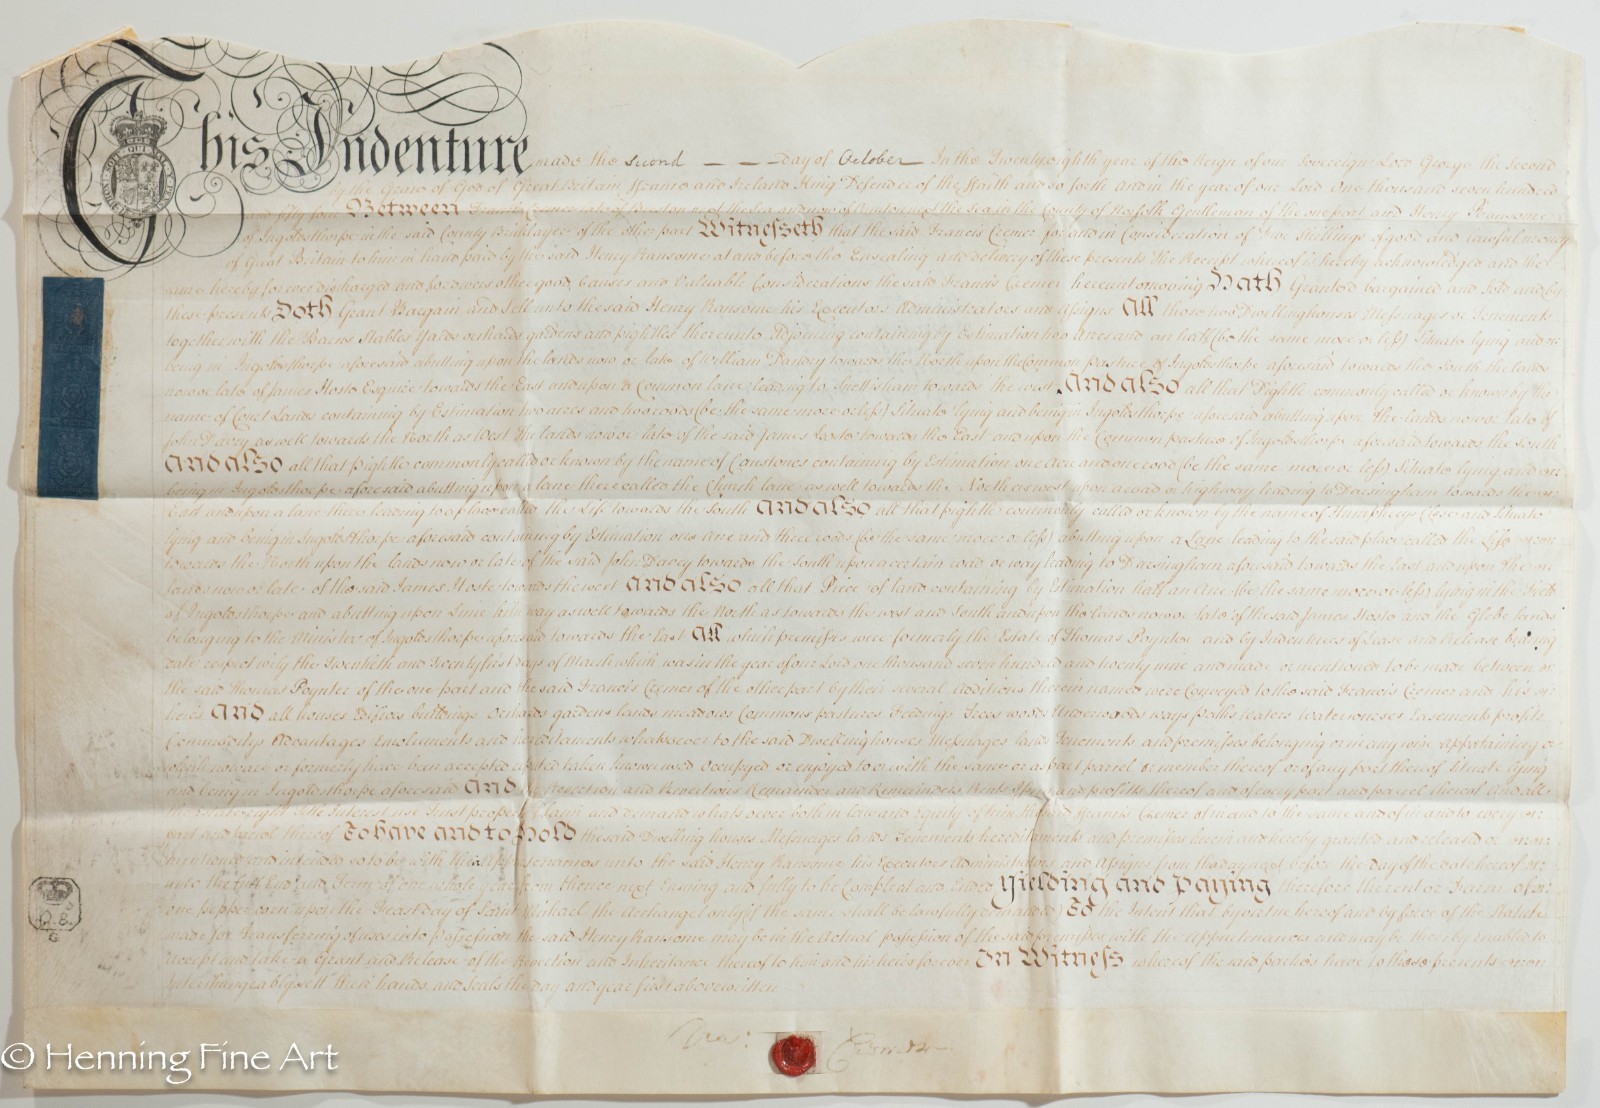 This Indenture made the second — — — day of October — In the Twenty eighth year of the Reign of our Sovereign Lord George the Second
by the Grace of God of Great Britain France and Ireland King Defender of the Faith and so forth And in the year of our Lord One thousand seven hundred
and fifty four Between Francis Cremer in the County of Norfolk Gentleman of the one part and Henry Ransome
of Ingoldsthorpe in the said County Bricklayer of the other part Witnesseth that the said Francis Cremer for and in Consideration of Five Shillings of good and lawful money
of Great Britain to him in hand paid by the said Henry Ransome at and before the Ensealing and delivery of these presents the Receipt whereof is hereby acknowledged and the
same hereby for ever discharged and for divers other good Causes and Valuable Considerations the said Francis Cremer hereunto moving Hath Granted bargained and Sold and by
these presents Doth Grant Bargain and Sell unto the said Henry Ransome his Executors Administrators and Assigns All those two Dwellinghouses Messuages or Tenements
together with the Barns Stables Yards orchards gardens and pightles thereunto Adjoining containing by Estimation two Acres and an half (be the same more or less) Situate lying and
being in Ingoldsthorpe aforesaid abutting upon the lands now or late of William Davery towards the North upon the Common pasture of Ingoldsthorpe aforesaid towards the South the lands
now or late of James Hoste Esquire towards the East and upon a Common lane leading to Snettisham towards the west And also all that Pightle commonly called or known by the
name of Lands containing by Estimation two acres and two roods (be the same more or less) Situate lying and being in Ingoldsthorpe aforesaid abutting upon the lands now or late of
John Davey as well towards the North as West the lands now or late of the said James Hoste towards the East and upon the Common pasture of Ingoldsthorpe aforesaid towards the South
And also all that pightle commonly called or known by the name of Constones containing by Estimation one Acre and one rood (be the same more or less) Situate lying and
being in Ingoldsthorpe aforesaid abutting upon a lane there called the Church lane as well towards the North as west upon a road or highway leading to Darsingham towards the
East and upon a lane there leading to a place called the towards the South And also all that pightle commonly called or known by the name of Humphreys Close and Situate
lying and being in Ingoldsthorpe aforesaid containing by Estimation one acre and three roods (be the same more or less) abutting upon a Lane leading to the said place called the
towards the North upon the lands now or late of the said John Davey towards the South upon a certain road or way leading to Darsingham aforesaid towards the East and upon the
lands now or late of the said James Hoste towards the west And also all that Piece of land containing by Estimation half an Acre (be the same more or less) lying in the Fields
of Ingoldsthorpe and abutting upon way as well towards the North as towards the west and South and upon the lands now or late of the said James Hoste and the Glebe lands
belonging to the Minister of Ingoldsthorpe aforesaid towards the East All which premises were formerly the Estate of Thomas Poynter and by Indentures of Lease and Release bearing
date respectively the Twentieth and Twenty first days of March which was in the year of our Lord one thousand seven hundred and twenty nine and made or mentioned to be made between
the said Thomas Poynter of the one part and the said Francis Cremer of the other part by their several Additions therein named were Conveyed to the said Francis Cremer and his
heirs And all houses Edifices buildings orchards gardens lands meadows Commons pastures Feedings Trees woods Underwoods ways paths Waters Watercourses Easements profits
Commoditys Advantages Emoluments and hereditaments whatsoever to the said Dwellinghouses Messuages lands Tenements and premisses belonging or in any wise appertaining or
which now are or formerly have been accepted reputed taken known used occupyed or enjoyed to or with the same or as part parcel or member thereof or of any part thereof Situate lying
and being in Ingoldsthorpe aforesaid And the Reversion and Reversions Remainder and Remainders Rents Issues and profitts thereof and of every part and parcel thereof And all
the Estate right title Interest use trust property claim and demand whatsoever both in law and equity of him the said Francis Cremer of in and to the same and of in and to every
part and parcel thereof To have and to hold the said Dwelling houses Messuages lands Tenements hereditaments and premisses herein and hereby granted and released or
mentioned and intended so to be with their Appurtenances unto the said Henry Ransome his Executors Administrators and Assigns from the day next before the day of the date hereof
unto the full End and Term of one whole year from thence next Ensuing and fully to be Compleat and Ended Yielding and Paying therefore the rent or Farm of
one pepper corn upon the Feast day of Saint Michael the Archangel only (if the same shall be lawfully demanded) To the Intent that by virtue hereof and by force of the Statute
made for transferring of uses into possession the said Henry Ransome may be in the Actual possession of the said premisses with the Appurtenances and may be thereby Enabled to
accept and take a Grant and Release of the Reversion and Inheritance thereof to him and his heirs for ever In Witness whereof the said parties have to these presents
Interchangeably sett their hands and Seals the day and year first above written
© Henning Fine Art